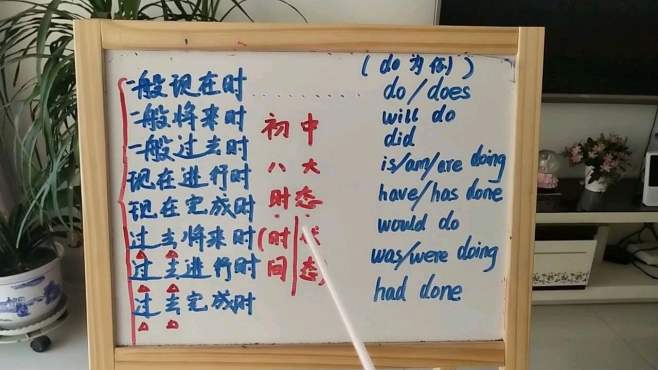 (do为例)
一般现在时 ………… do/does
一般将来时 will do
一般过去时 did
现在进行时 is/am/are doing
现在完成时 have/has done
过去将来时 would do
过去进行时 was/were doing
过去完成时 had done
初中
八大
时态
(时状
间态)